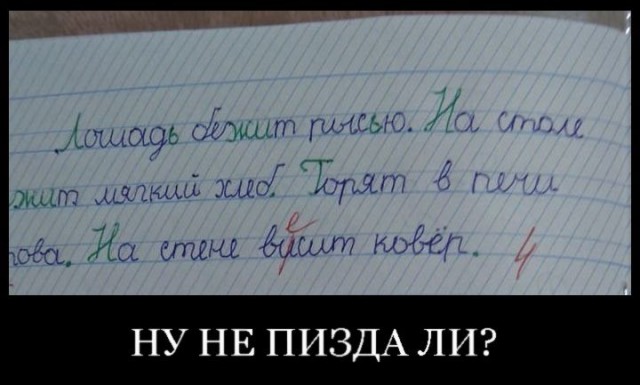 Лошадь бежит рысью. На столе
жит мягкий хлеб. Горят в печи
ова. На стене висит ковёр. 4
е
НУ НЕ ПИЗДА ЛИ?